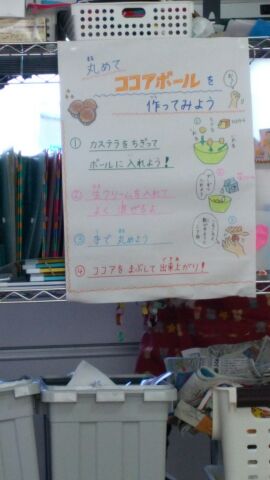 丸めて
ココアボールを
作ってみよう
① カステラをちぎって
ボールに入れよう!
② 生クリームを入れて
よく混ぜるよ
③ 手で丸めよう
④ ココアをまぶして出来上がり!